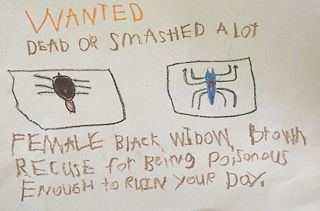 WANTED
DEAD OR SMASHED A LOT
FEMALE Black, WIDOW, Brown
RECUSE for BEING POISONOUS
ENOUGH to RUIN YOUR DAY.